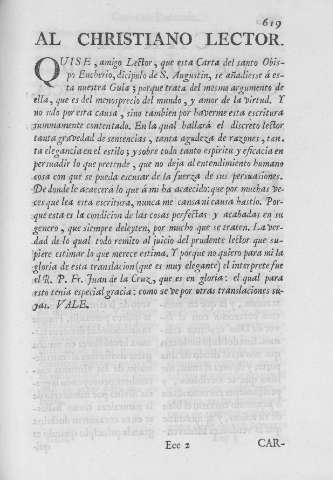 619
AL CHRISTIANO LECTOR.
QUISE, amigo Lector, que esta Carta del santo Obis-
po Eucherio, dicipulo de S. Augustin, se añadiesse á es-
ta nuestra Guia; porque trata del mesmo argumento de
ella, que es del menosprecio del mundo, y amor de la virtud. Y
no solo por esta causa, sino tambien por haverme esta escritura
summamente contentado. En la qual hallará el discreto lector
tanta gravedad de sentencias, tanta agudeza de razones, tan-
ta elegancia en el estilo; y sobre todo tanto espiritu y eficacia en
persuadir lo que pretende, que no deja al entendimiento humano
cosa con que se pueda escusar de la fuerza de sus persuasiones.
De donde le acaecerá lo que á mi ha acaecido: que por muchas ve-
ces que lea esta escritura, nunca me cansa ni causa hastio. Por-
que esta es la condicion de las cosas perfectas y acabadas en su
genero, que siempre deleyten, por mucho que se traten. La ver-
dad de lo qual todo remito al juicio del prudente lector que su-
piere estimar lo que merece estima. Y porque no quiero para mi la
gloria de esta translacion (que es muy elegante) el interprete fue
el R. P. Fr. Juan de la Cruz, que es en gloria: el qual para
esto tenia especial gracia: como se ve por otras translaciones su-
yas. VALE.
Eee 2
CAR-